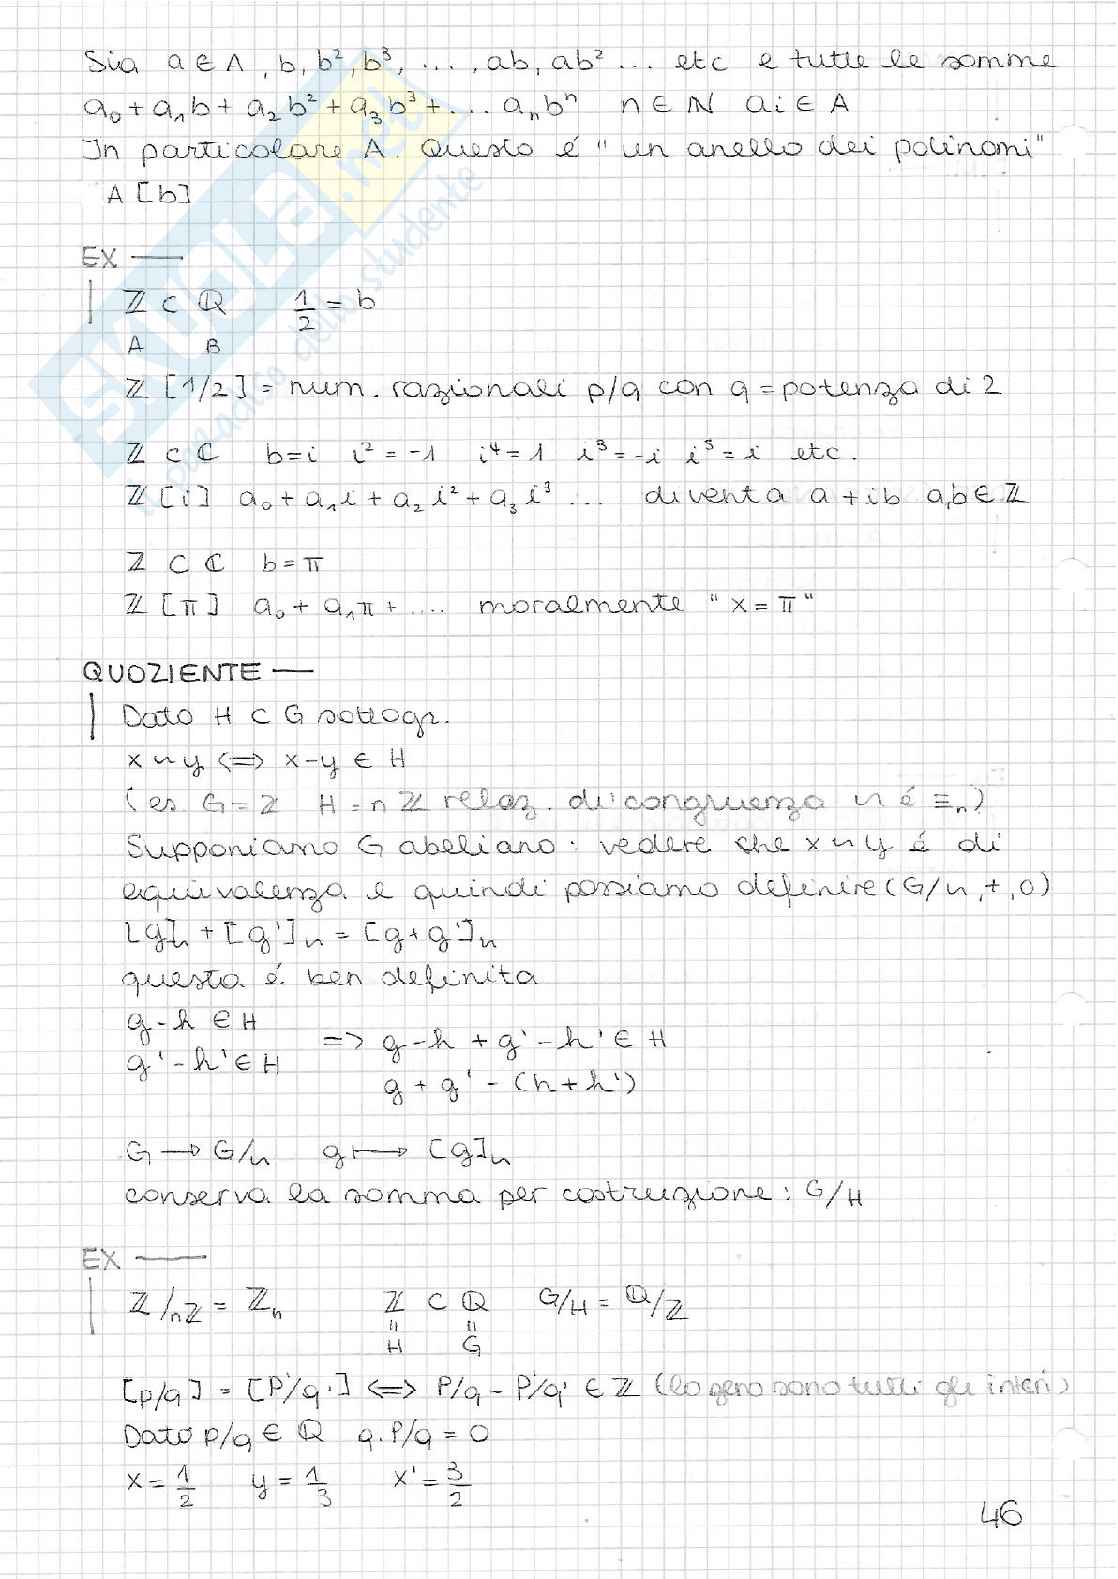 Sia a ∈ A, b, b², b³, ..., ab, ab² ... etc e tutte le somme
a₀ + a₁b + a₂b² + a₃b³ + ... aₙbⁿ n ∈ ℕ ai ∈ A
In particolare A. Questo é "un anello dei polinomi"
A[b]
EX —
ℤ ⊂ ℚ 1/2 = b
A B
ℤ[1/2] = num. razionali p/q con q = potenza di 2
ℤ ⊂ ℂ b=i i²=-1 i⁴=1 i³=-i i⁵=i etc.
ℤ[i] a₀ + a₁i + a₂i² + a₃i³ ... diventa a+ib a,b ∈ ℤ
ℤ ⊂ ℂ b=π
ℤ[π] a₀ + a₁π + .... moralmente "x=π"
QUOZIENTE —
Dato H ⊂ G sottogr.
x ~ y <=> x-y ∈ H
(es. G=ℤ H=nℤ relaz. di congruenza ~ é ≡ₙ)
Supponiamo G abeliano: vedere che x~y é di
equivalenza e quindi possiamo definire (G/~, +, 0)
[g]~ + [g']~ = [g+g']~
questa é ben definita
g-h ∈ H
g'-h' ∈ H => g-h + g'-h' ∈ H
g + g' - (h+h')
G → G/~ g ↦ [g]~
conserva la somma per costruzione: G/H
EX —
ℤ/nℤ = ℤₙ ℤ ⊂ ℚ G/H = ℚ/ℤ
= =
H G
[p/q] = [p'/q'] <=> p/q - p'/q' ∈ ℤ (lo zero sono tutti gli interi)
Dato p/q ∈ ℚ q·p/q = 0
x = 1/2 y = 1/3 x' = 3/2
46
SKUOLA.net
paradiso dello studente